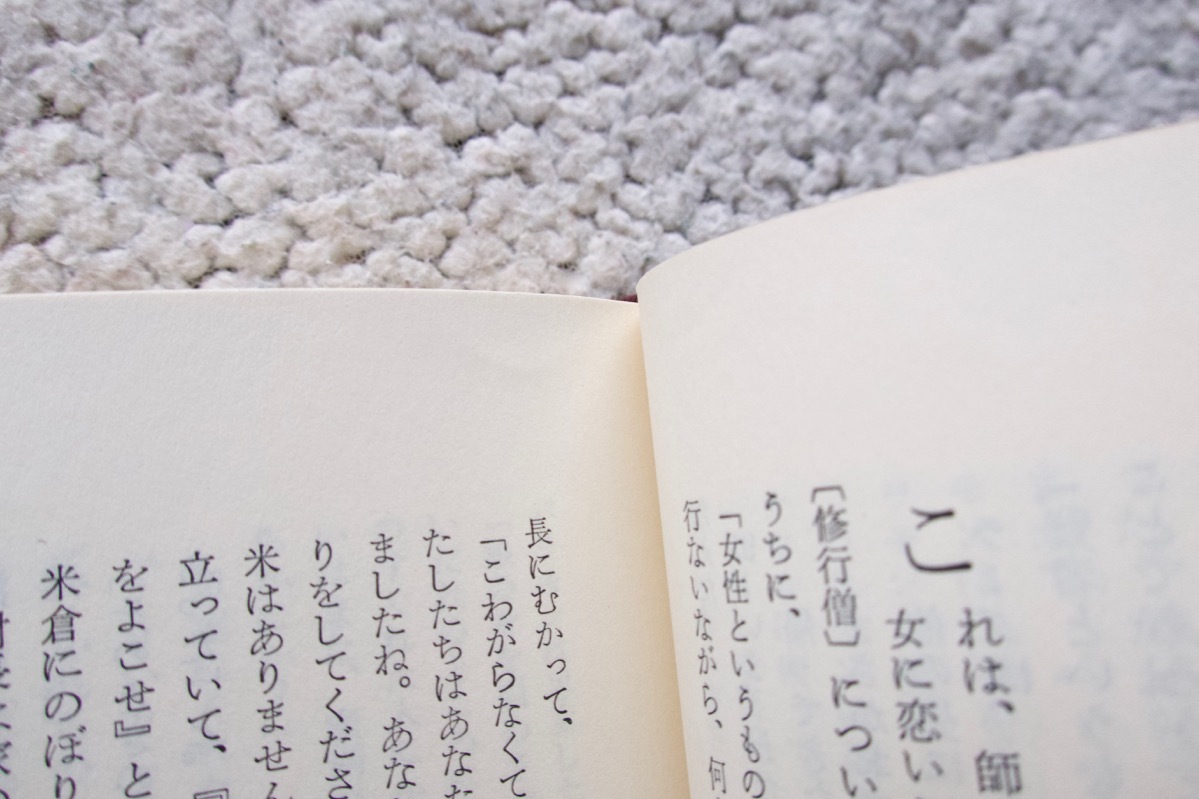 これは、師
女に恋い
〔修行僧〕につい
うちに、
「女性というもの
行ないながら、何
長にむかって、
「こわがらなくて
たしたちはあなた
ましたね。あな
りをしてくださ
米はありません
立っていて、『
をよこせ』と
米倉にのぼり